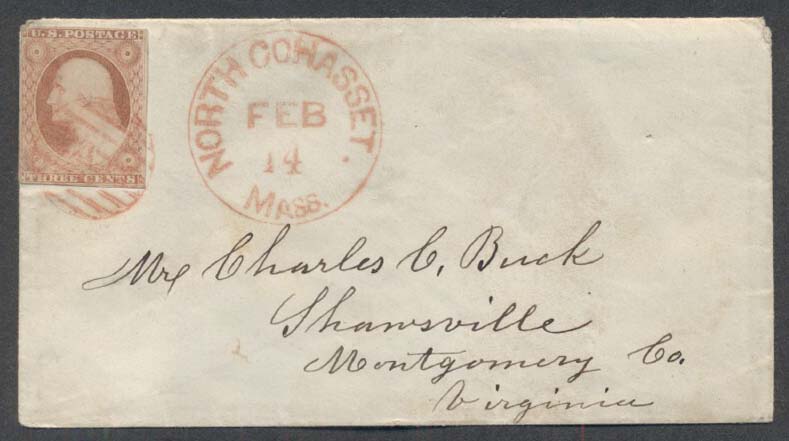 U.S. POSTAGE
THREE CENTS
NORTH COHASSET.
FEB
14
MASS.
Mr Charles C. Buck
Shawsville
Montgomery Co.
Virginia